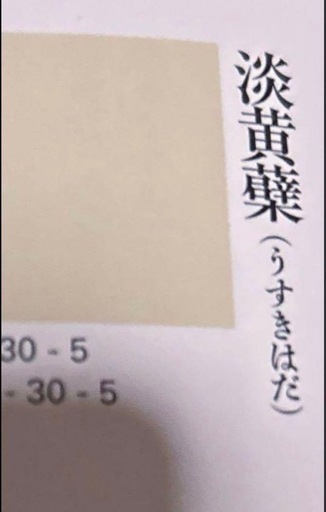 淡黄蘗
(うすきはだ)
30 - 5
- 30 - 5